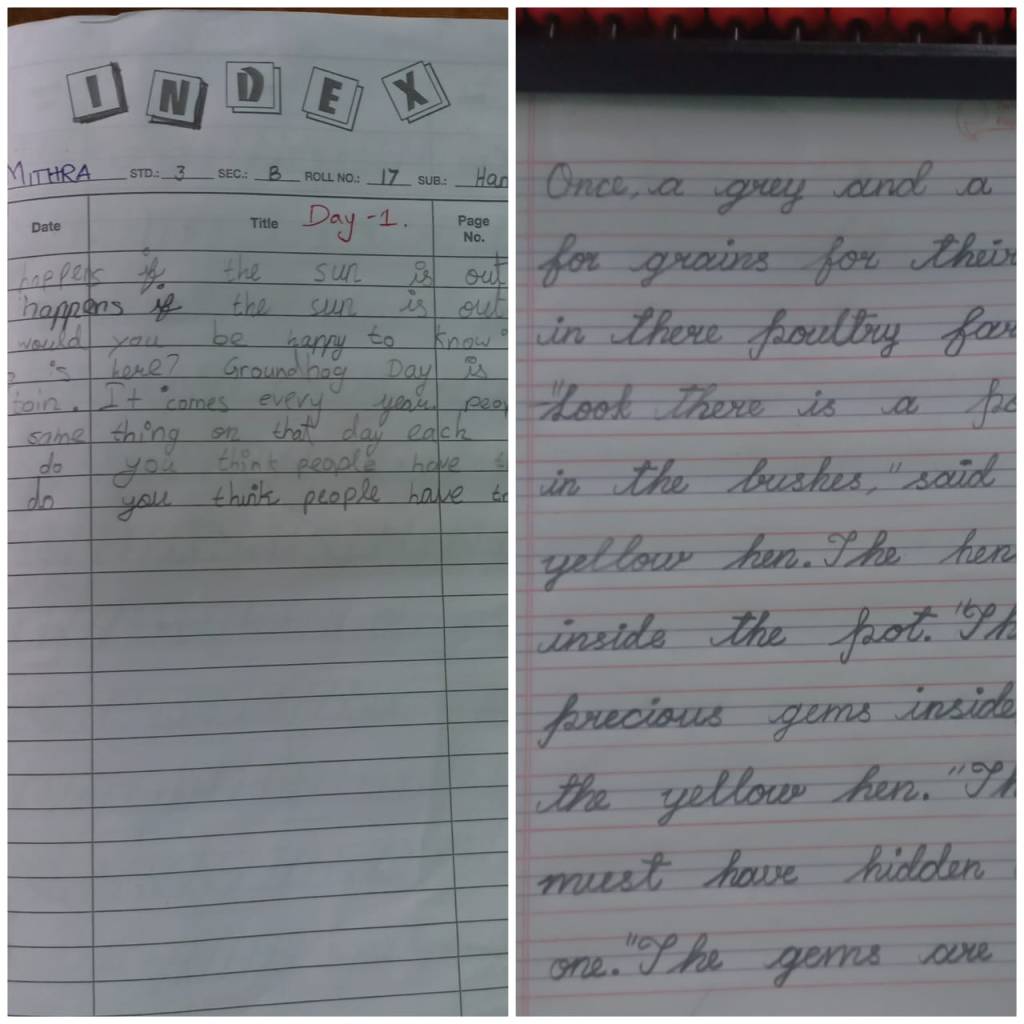 INDEX
MITHRA STD.: 3 SEC.: B ROLL NO.: 17 SUB.: Han
Date Title Day -1. Page No.
happens if the sun is out
happens if the sun is out
would you be happy to know
is here? Groundhog Day is
toin. It comes every year. peop
same thing on that day each
do you think people have t
do you think people have to
Once, a grey and a
for grains for their
in there poultry far
"Look there is a po
in the bushes," said
yellow hen. The hen
inside the pot. "Th
precious gems inside
the yellow hen. "Th
must have hidden
one." The gems are